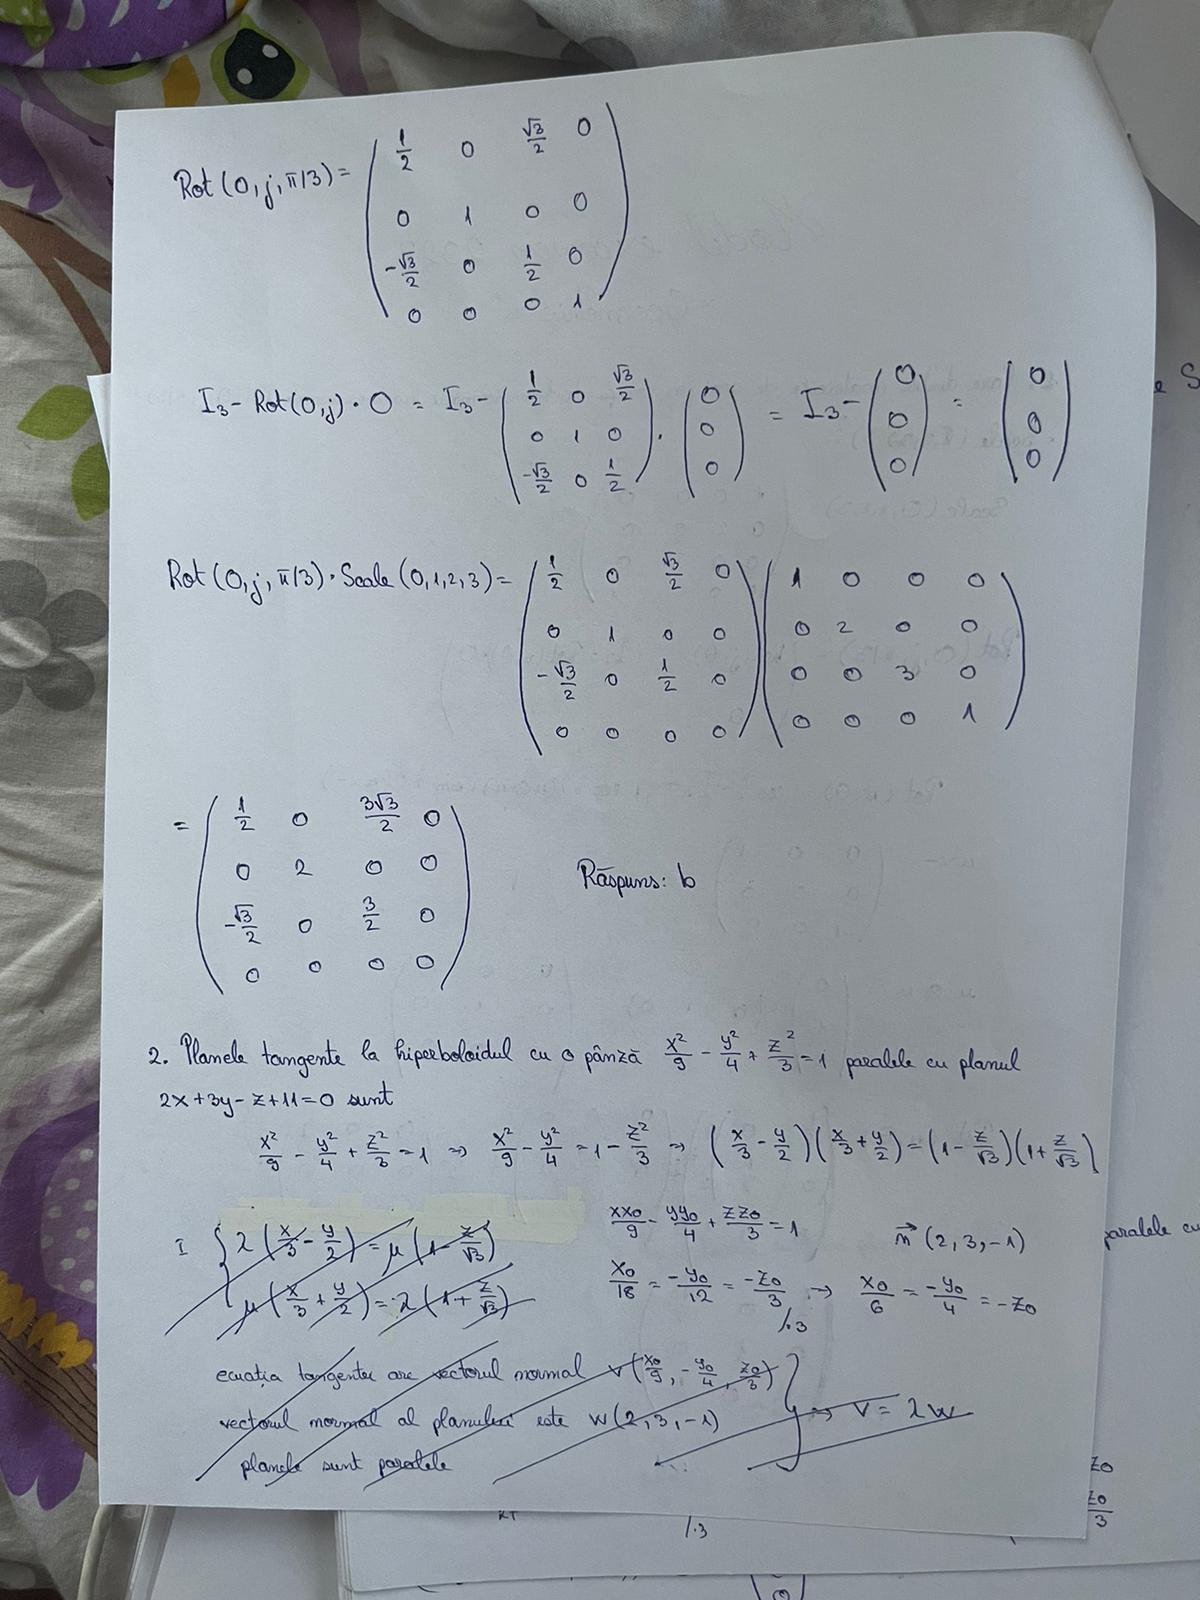 Rot(0,j,π/3) = ( 1/2 0 √3/2 0
0 1 0 0
-√3/2 0 1/2 0
0 0 0 1 )
I₃ - Rot(0,j) · 0 = I₃ - ( 1/2 0 √3/2 ) · ( 0 ) = I₃ - ( 0 ) = ( 0 )
( 0 1 0 ) ( 0 ) ( 0 ) ( 0 )
( -√3/2 0 1/2 ) ( 0 ) ( 0 ) ( 0 )
Rot(0,j,π/3) · Scale(0,1,2,3) = ( 1/2 0 √3/2 0 ) ( 1 0 0 0 )
( 0 1 0 0 ) ( 0 2 0 0 )
( -√3/2 0 1/2 0 ) ( 0 0 3 0 )
( 0 0 0 0 ) ( 0 0 0 1 )
= ( 1/2 0 3√3/2 0
0 2 0 0
-√3/2 0 3/2 0
0 0 0 0 )
Răspuns: b
2. Planele tangente la hiperboloidul cu o pânză x²/9 - y²/4 + z²/3 = 1 paralele cu planul
2x+3y-z+11=0 sunt
x²/9 - y²/4 + z²/3 = 1 => x²/9 - y²/4 = 1 - z²/3 => (x/3 - y/2)(x/3 + y/2) = (1 - z/√3)(1 + z/√3)
I { λ(x/3 - y/2) = μ(1 - z/√3)
μ(x/3 + y/2) = λ(1 + z/√3)
xx₀/9 - yy₀/4 + zz₀/3 = 1 n⃗ (2,3,-1)
x₀/18 = -y₀/12 = -z₀/3 => x₀/6 = -y₀/4 = -z₀
/·3
ecuația tangentei are vectorul normal v(x₀/9, -y₀/4, z₀/3)
vectorul normal al planului este w(2,3,-1) } => v = λw
planele sunt paralele
paralele cu
z₀
z₀/3
/·3